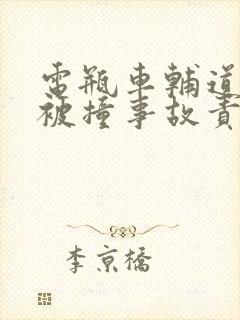 電瓶車輔道
被撞事故責
李京橋